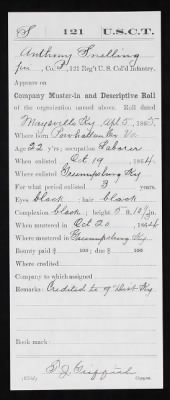 S 121 U.S.C.T.
Anthony Snelling
Co. , 121 Reg't U. S. Col'd Infantry.
Appears on
Company Muster-in and Descriptive Roll
of the organization named above. Roll dated
Maysville Ky, Apl 5, 1865
Where born Powhattan Co Va
Age 22 y'rs; occupation Laborer
When enlisted Oct 19, 1864.
Where enlisted Ky
For what period enlisted 3 years.
Eyes black; hair black
Complexion black; height 5 ft. in.
When mustered in Oct 20, 1864
Where mustered in Ky
Bounty paid $ 100; due $ 100
Where credited
Company to which assigned
Remarks: Credited to 9 Dist Ky
Book mark:
Copyist.